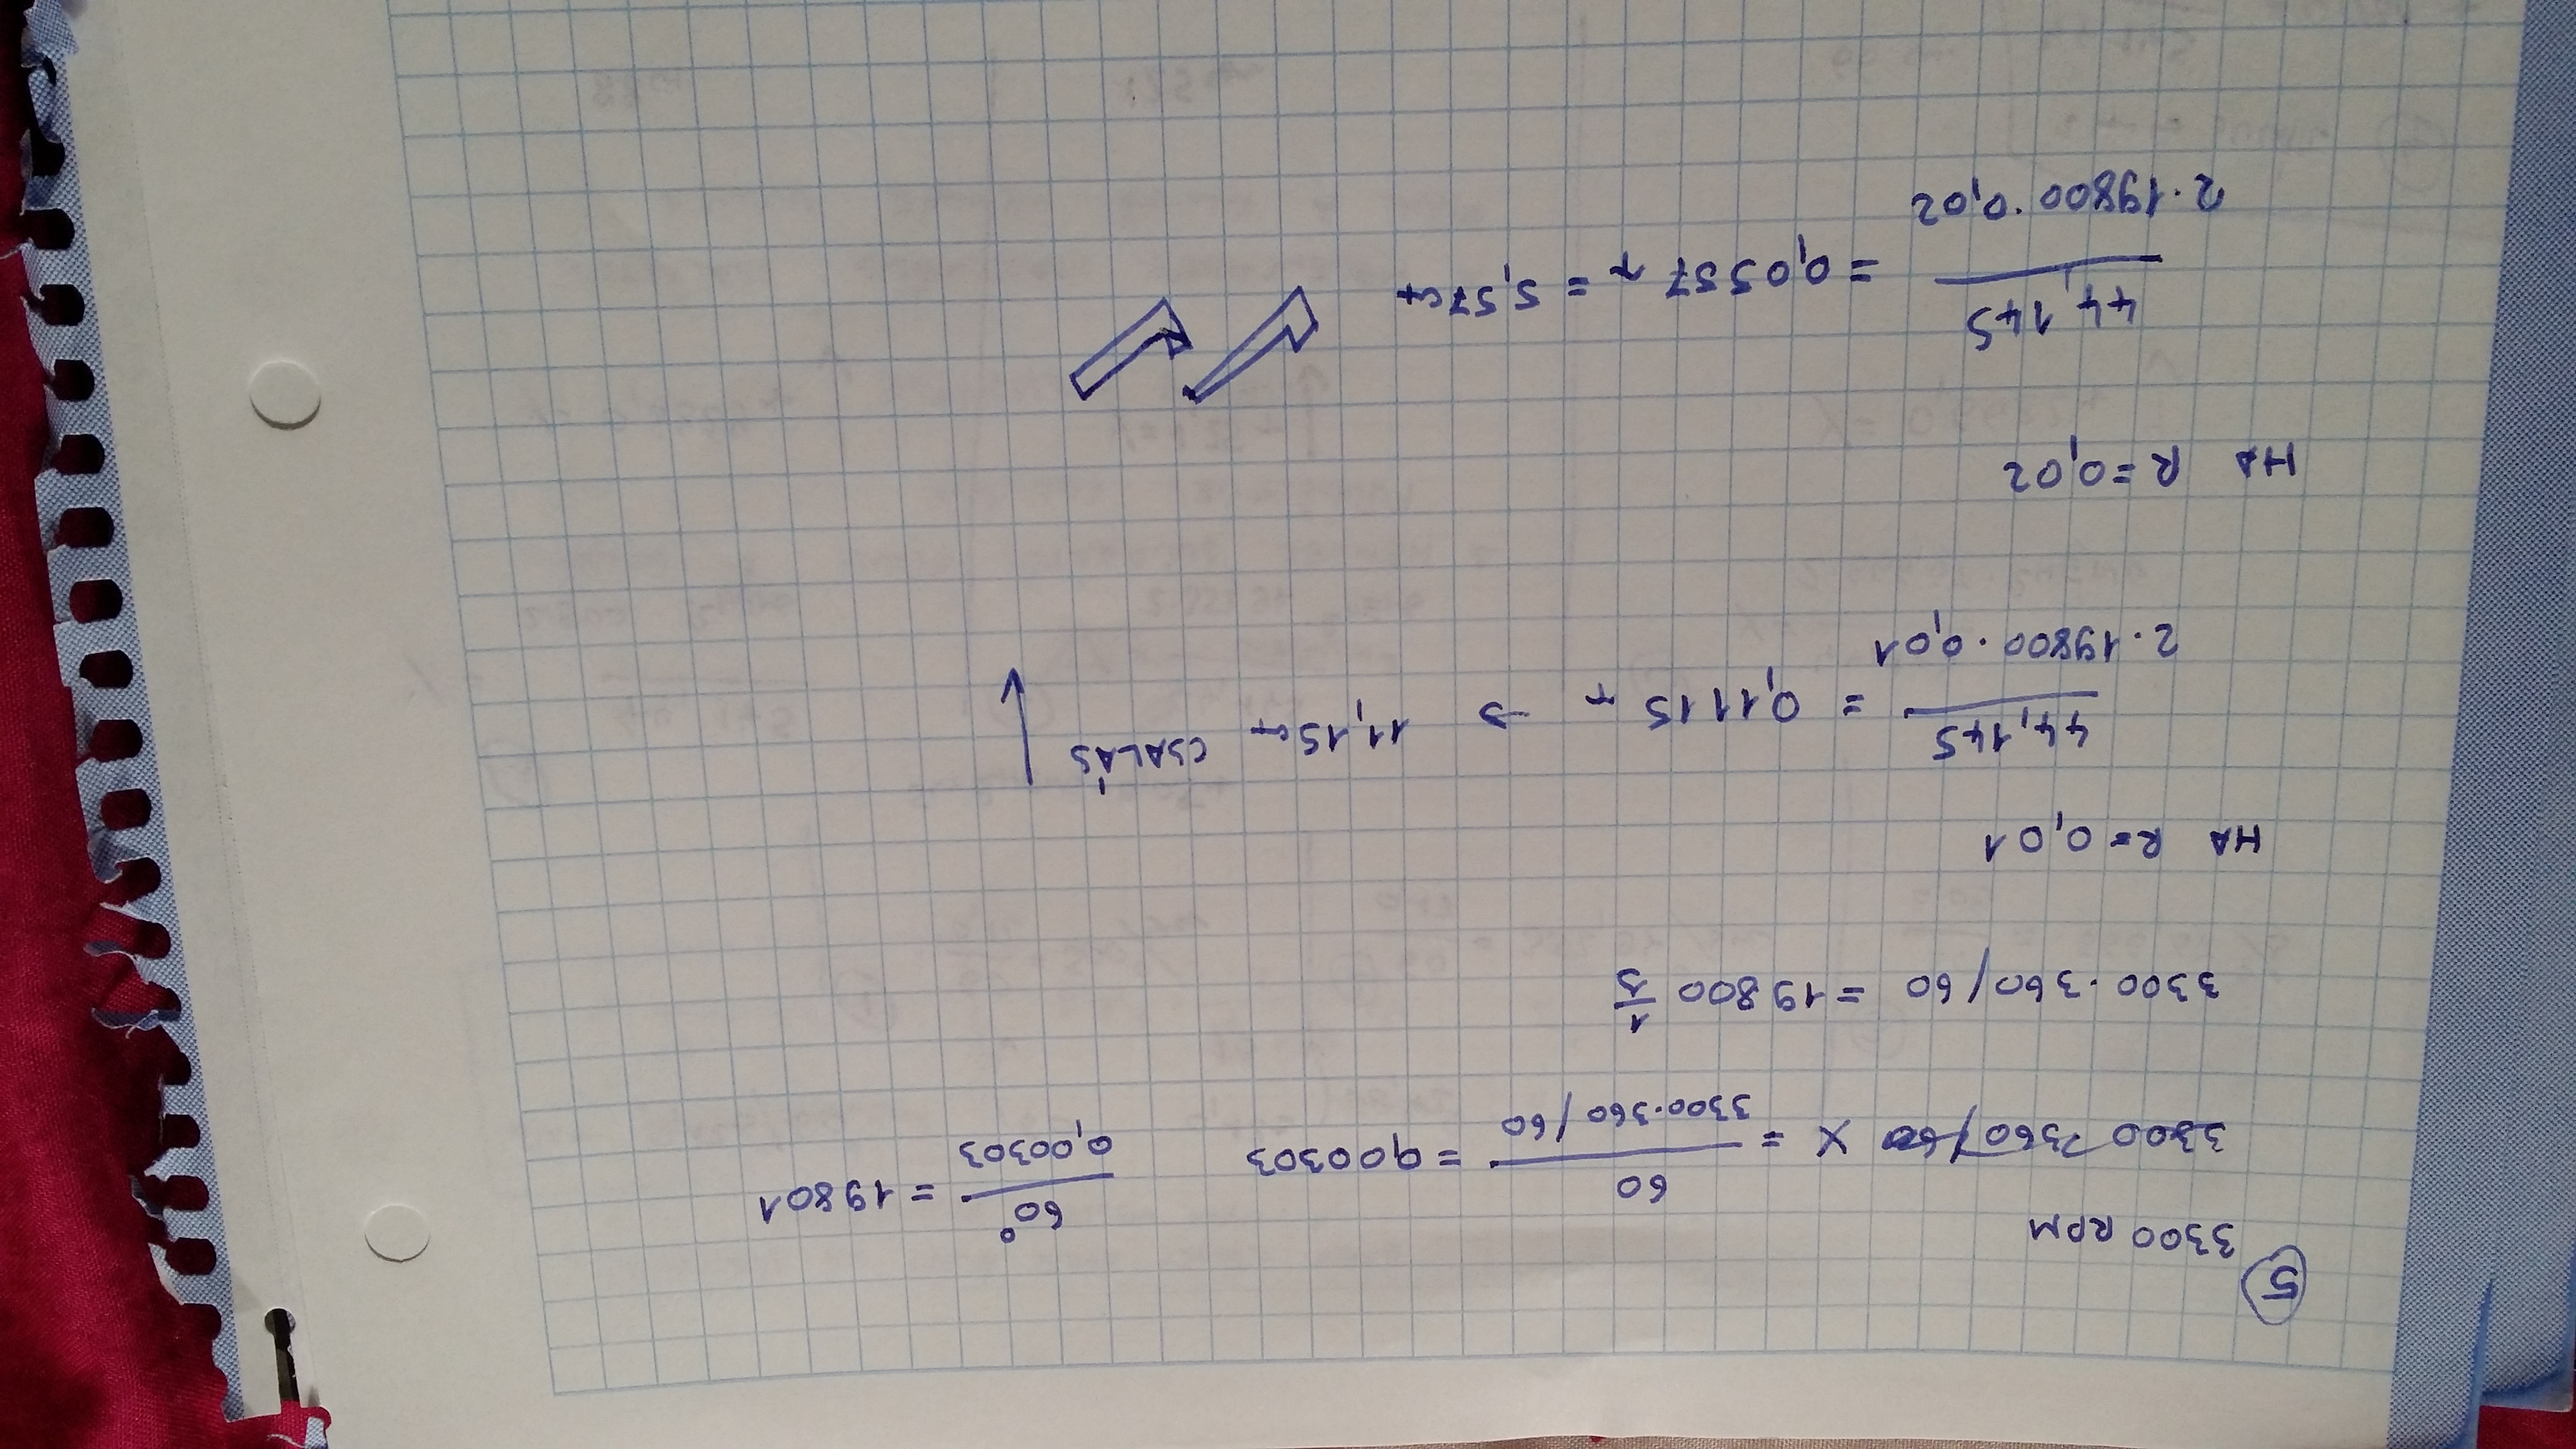 5
3300 RPM
3300 · 360/60 X = 60 / 3300·360/60 = 0,00303
60° / 0,00303 = 19801
3300 · 360/60 = 19800 1/s
HA R = 0,01
44,145 / 2·19800·0,01 = 0,1115 m → 11,15 cm CSALÁS ↓
HA R = 0,02
44,145 / 2·19800·0,02 = 0,0557 m = 5,57 cm